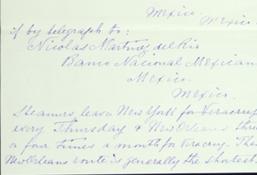 Mexico.
Mexico
if by telegraph to:
Nicolas Martinez del Rio
Banco Nacional Mexicano
Mexico.
Mexico.
Steamers leave New York for Veracruz
every Thursday & New Orleans three
a four times a month for Veracruz. The
New Orleans route is generally the shortest